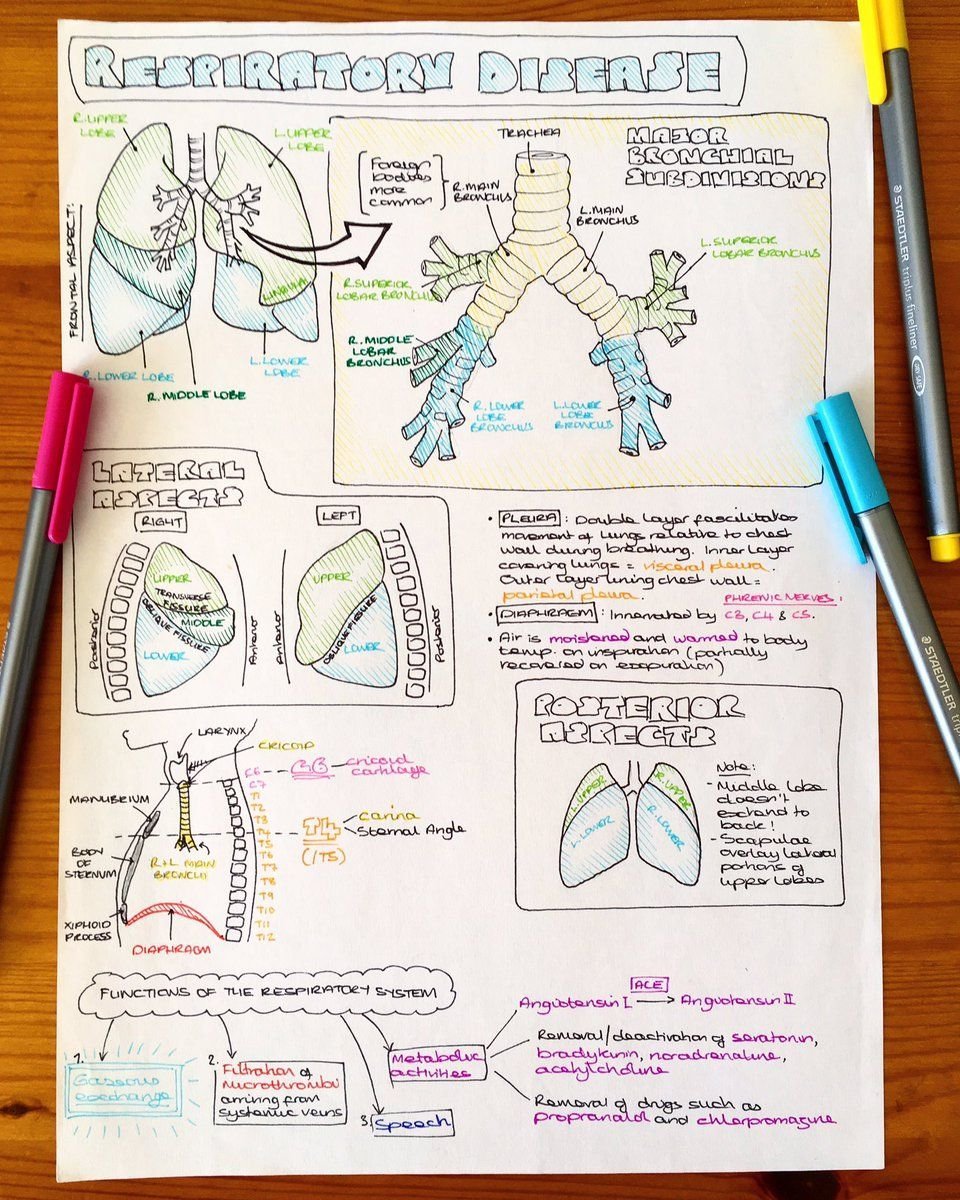 RESPIRATORY DISEASE
R. UPPER
LOBE
L. UPPER
LOBE
FRONTAL ASPECT:
LINGULA
R. LOWER LOBE
R. MIDDLE LOBE
L. LOWER
LOBE
MAJOR
BRONCHIAL
SUBDIVISIONS
TRACHEA
Foreign
bodies
more
common
R. MAIN
BRONCHUS
L. MAIN
BRONCHUS
L. SUPERIOR
LOBAR BRONCHUS
R. SUPERIOR
LOBAR BRONCHUS
R. MIDDLE
LOBAR
BRONCHUS
R. LOWER
LOBE
BRONCHUS
L. LOWER
LOBE
BRONCHUS
LATERAL
ASPECTS
RIGHT
LEFT
UPPER
TRANSVERSE
FISSURE
MIDDLE
OBLIQUE FISSURE
LOWER
Posterior
Anterior
UPPER
OBLIQUE FISSURE
LOWER
Anterior
Posterior
• PLEURA: Double layer fascilitates
movement of lungs relative to chest
wall during breathing. Inner layer
covering lungs = visceral pleura.
Outer layer lining chest wall =
parietal pleura.
PHRENIC NERVES:
• DIAPHRAGM: Innervated by C3, C4 & C5.
• Air is moistened and warmed to body
temp. on inspiration (partially
recovered on expiration)
LARYNX
CRICOID
C6 -- C6 - cricoid
cartilage
C7
T1
T2
T3
T4
T5
T6
T7
T8
T9
T10
T11
T12
T4
(/T5)
Carina
Sternal Angle
MANUBRIUM
BODY
OF
STERNUM
R+L MAIN
BRONCHI
XIPHOID
PROCESS
DIAPHRAGM
POSTERIOR
ASPECTS
L. UPPER
R. UPPER
L. LOWER
R. LOWER
Note:
- Middle lobe
doesn't
extend to
back!
- Scapulae
overlay lateral
portions of
upper lobes
FUNCTIONS OF THE RESPIRATORY SYSTEM
1.
Gaseous
exchange
2.
Filtration of
microthrombi
arriving from
systemic veins
3.
Speech
Metabolic
activities
ACE
Angiotensin I → Angiotensin II
Removal/deactivation of seratonin,
bradykinin, noradrenaline,
acetylcholine
Removal of drugs such as
propranalol and chlorpromazine
STAEDTLER triplus fineliner
DRY SAFE
STAEDTLER